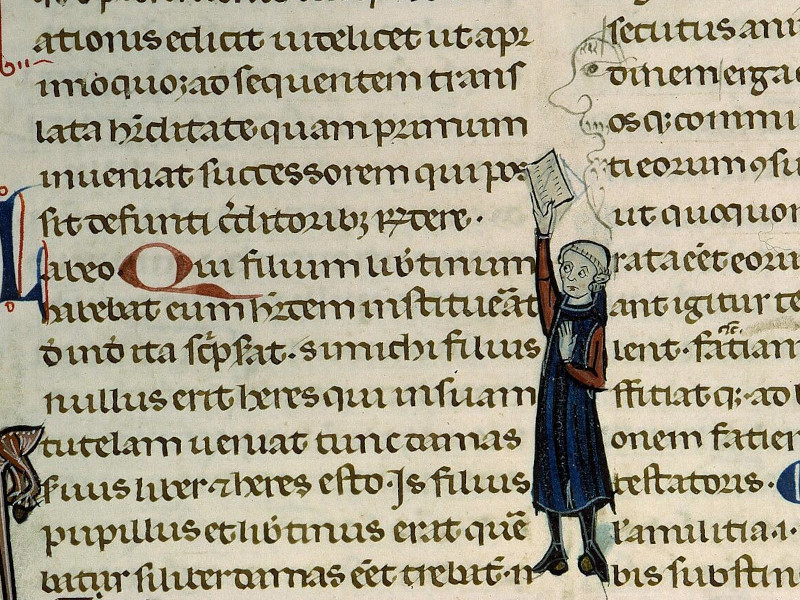 ationis edicit uidelicet ut a pr
imo quoq; ad sequentem trans
lata h̄editate quam primum
inueniat successorem qui pos
sit defuncti c̄ditoribꝫ r̄ndere.
aueo Qui filium lib̄tinum
habebat eum h̄edem instituerat
dīnd ita sc̄psat. Si michi filius
nullus erit heres qui in suam
tutelam ueniat tunc damas
s̄uus liber ⁊ heres esto. Is filius
pupillus et lib̄tinus erat quē
batur si liber damas eēt trebat. n
secutus ani
dinem erga
osq; commu
ti eorum ꝯsu
ut quoquo
rata eēt eoru
ant igitur te
ient. fatiam
ffitiat q; ad
onem fatien
testatoris.
familitia .i.
bis substin